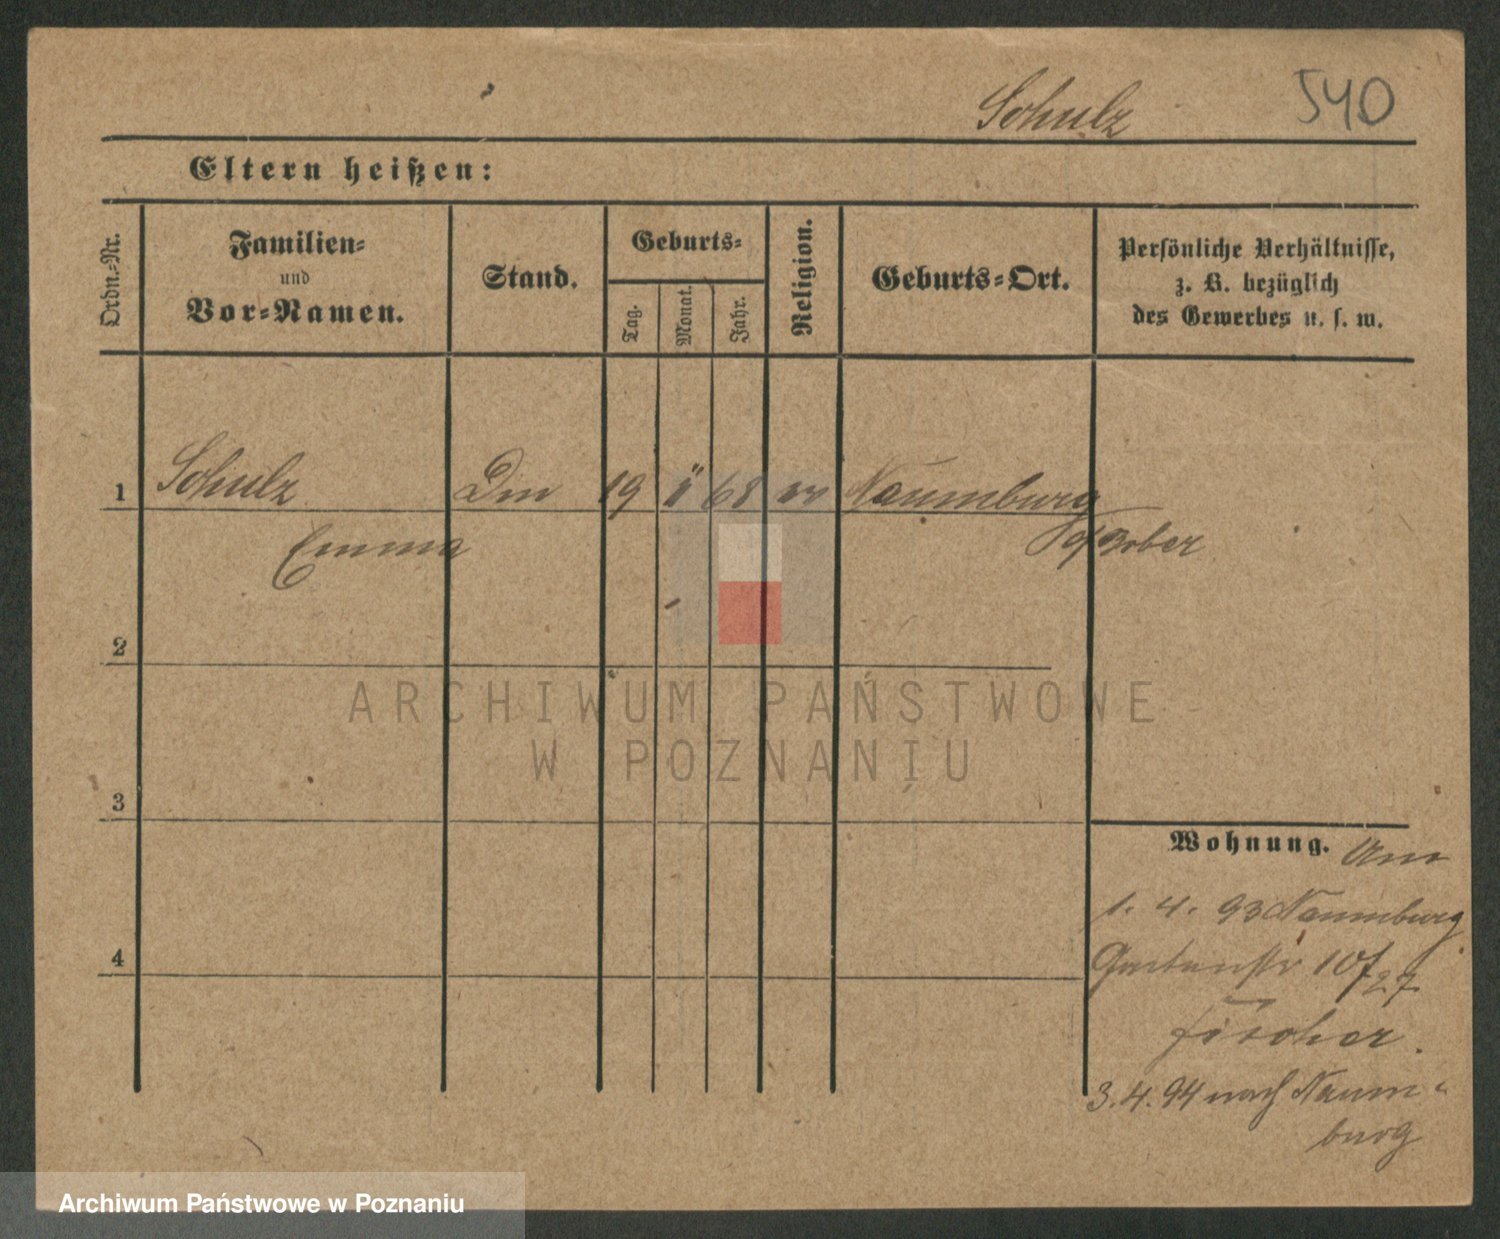 Schulz 540
Eltern heißen:
Ordn.-Nr.
Familien-
und
Vor-Namen.
Stand.
Geburts-
Tag.
Monat.
Jahr.
Religion.
Geburts-Ort.
Persönliche Verhältnisse,
z. B. bezüglich
des Gewerbes u. s. w.
1 Schulz 19 68 Naumburg
Emma
Bober
2
ARCHIWUM PAŃSTWOWE
W POZNANIU
3
Wohnung.
1. 4. 93 Naumburg
4
Gartenstr 10
Fischer.
3. 4. 94 nach Naum-
burg
Archiwum Państwowe w Poznaniu